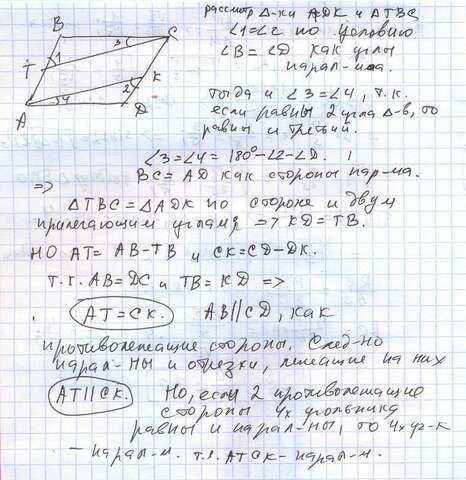 B
C
T
1
3
K
2
4
A
D
рассмотр Δ-ки ADK и ΔTBC
∠1=∠2 по условию
∠B=∠D как углы
парал-ма.
тогда и ∠3=∠4, т.к.
если равны 2 угла Δ-в, то
равны и третий.
∠3=∠4=180°-∠2-∠D.
BC=AD как стороны пар-ма.
=> ΔTBC=ΔADK по стороне и двум
прилегающим углам => KD=TB.
НО AT=AB-TB и CK=CD-DK.
т.к. AB=DC и TB=KD =>
AT=CK. AB||CD, как
противолежащие стороны. След-но
парал-ны и отрезки, лежащие на них
AT||CK. Но, если 2 противолежащие
стороны 4х угольника
равны и парал-ны, то 4х уг-к
- парал-м. т.е. ATCK - парал-м.